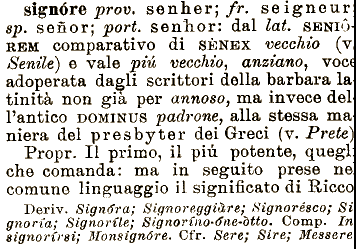 signóre prov. senher; fr. seigneur
sp. señor; port. senhor: dal lat. SENIÔ-
REM comparativo di SÈNEX vecchio (v.
Senile) e vale piú vecchio, anziano, voce
adoperata dagli scrittori della barbara la
tinità non già per annoso, ma invece del
l'antico DOMINUS padrone, alla stessa ma
niera del presbyter dei Greci (v. Prete)
Propr. Il primo, il piú potente, quegli
che comanda: ma in seguito prese nel
comune linguaggio il significato di Ricco
Deriv. Signóra; Signoreggiàre; Signorésco; Si
gnoría; Signoríle; Signoríno-óne-òtto. Comp. In
signorírsi; Monsignóre. Cfr. Sere; Sire; Messere